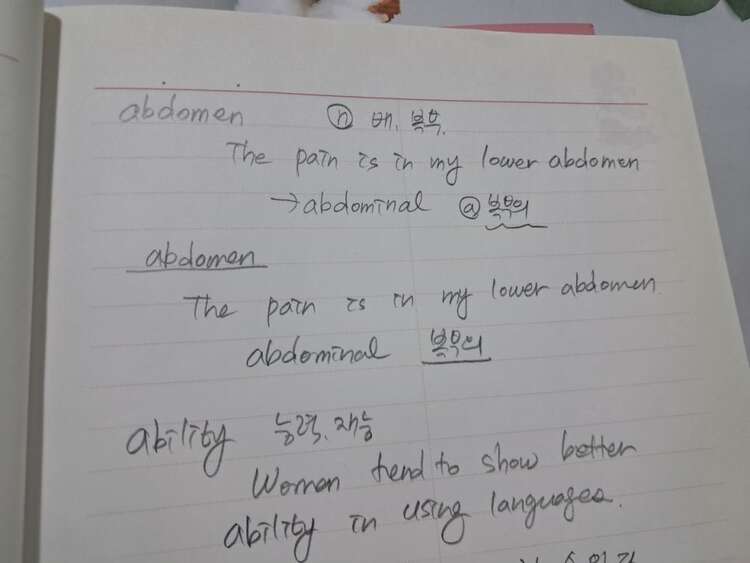 abdomen ⓝ 배. 복부.
The pain is in my lower abdomen
→abdominal ⓐ 복부의
abdomen
The pain is in my lower abdomen.
abdominal 복부의
ability 능력, 재능
Women tend to show better
ability in using languages.